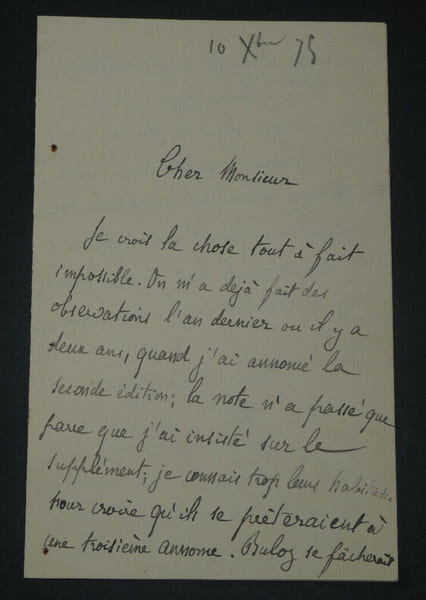 10 Xbre 75
Cher Monsieur
Je crois la chose tout à fait
impossible. On m'a dejà fait des
observations l'an dernier ou il y a
deux ans, quand j'ai annoncé la
seconde édition; la note n'a passé que
parce que j'ai insisté sur le
supplément; je connais trop leurs habitudes
pour croire qu'ils se prêteraient à
une troisième annonce. Buloz se fâcherait